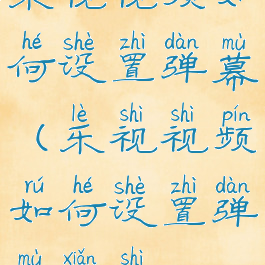 hé shè zhì dàn mù
何设置弹幕
lè shì shì pín
(乐视视频
rú hé shè zhì dàn
如何设置弹
mù xiǎn shì